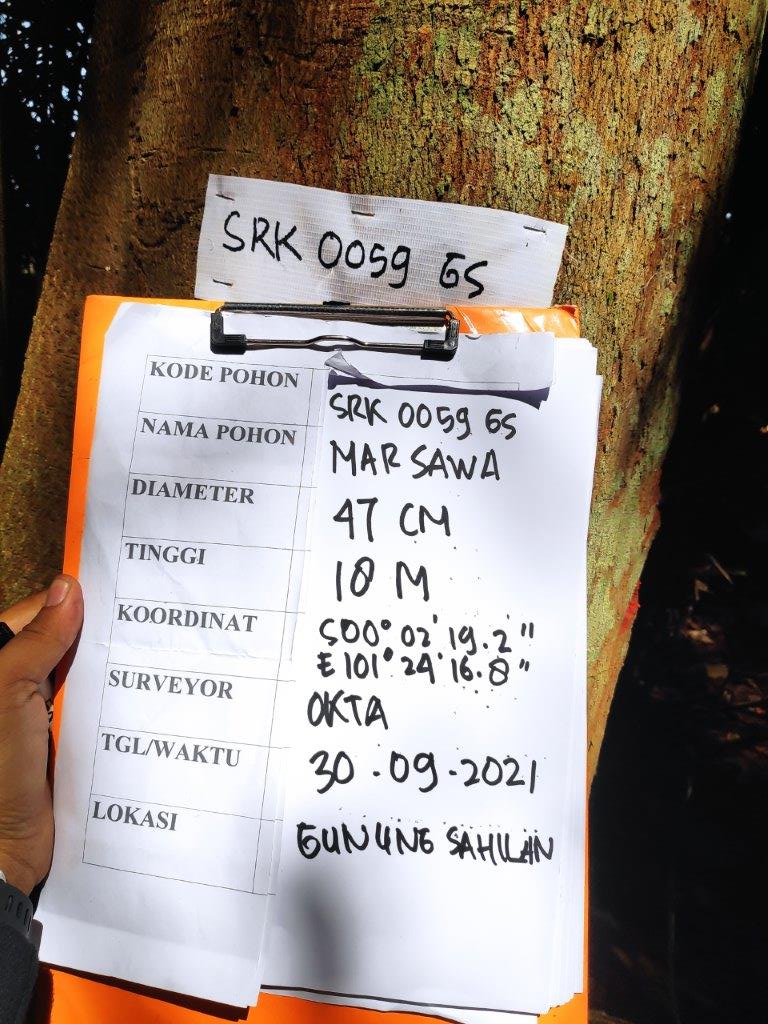 SRK 0059 GS
KODE POHON
SRK 0059 GS
NAMA POHON
MARSAWA
DIAMETER
47 CM
TINGGI
18 M
KOORDINAT
S00° 02' 19.2"
E 101° 24' 16.8"
SURVEYOR
OKTA
TGL/WAKTU
30.09.2021
LOKASI
GUNUNG SAHILAN